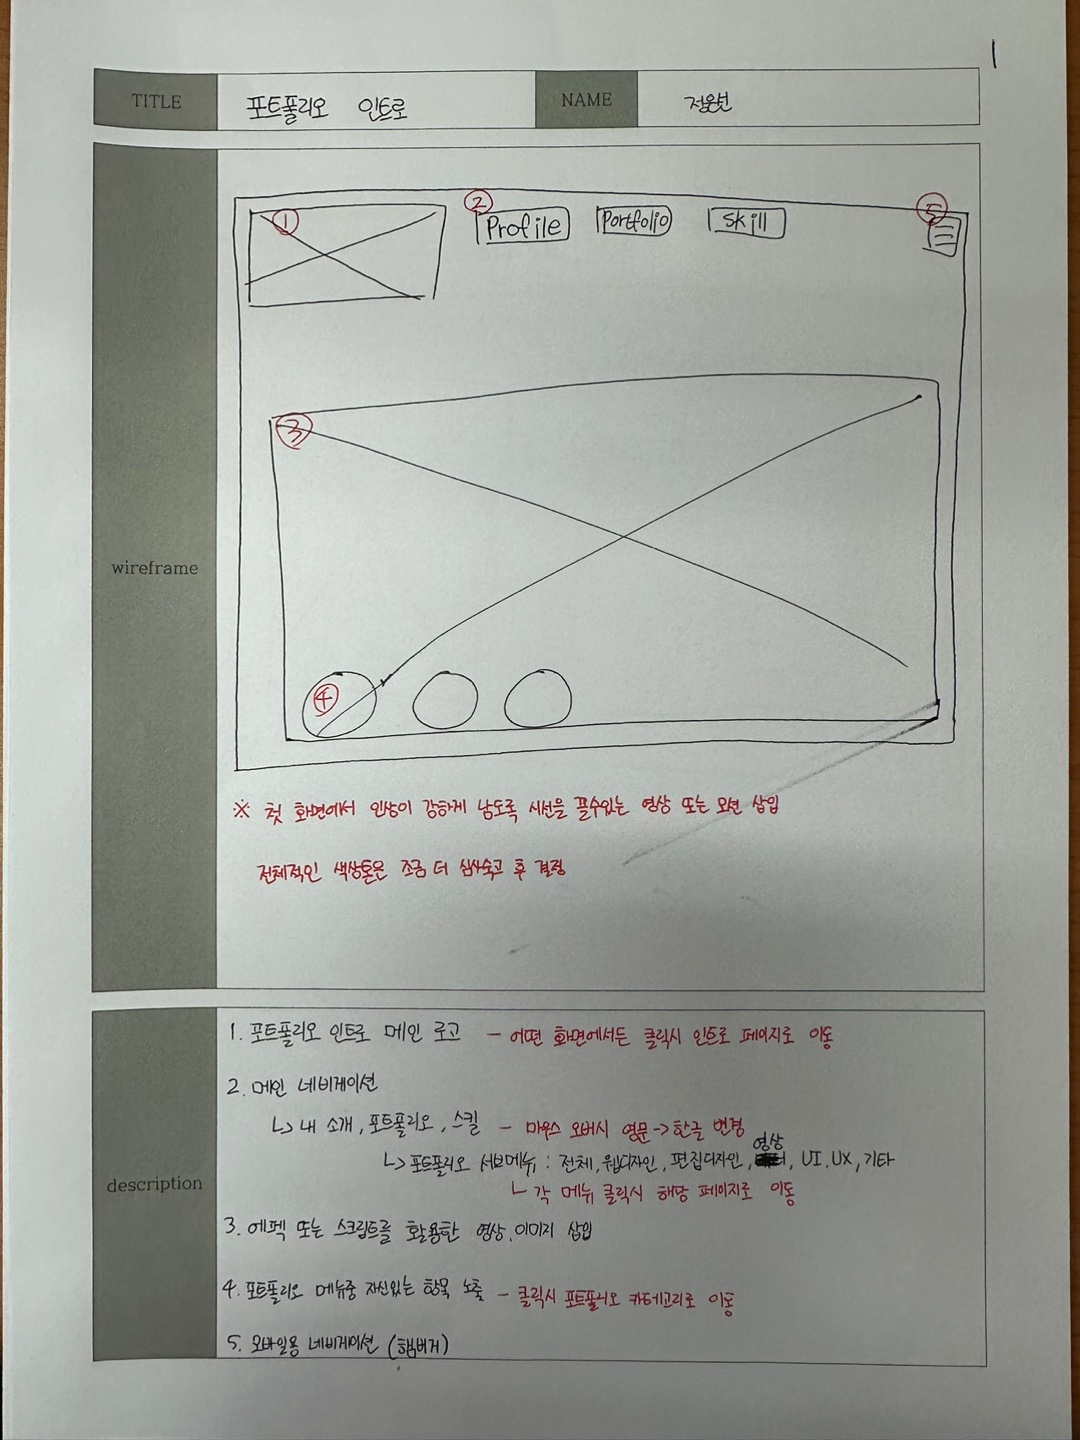 1
TITLE 포트폴리오 인트로 NAME 정윤선
wireframe
① ② Profile Portfolio Skill ⑤
③
④
※ 첫 화면에서 인상이 강하게 남도록 시선을 끌수있는 영상 또는 모션 삽입
전체적인 색상톤은 조금 더 심사숙고 후 결정
description
1. 포트폴리오 인트로 메인 로고 - 어떤 화면에서든 클릭시 인트로 페이지로 이동
2. 메인 네비게이션
↳ 내 소개, 포트폴리오, 스킬 - 마우스 오버시 영문→한글 변경
↳ 포트폴리오 서브메뉴 : 전체, 웹디자인, 편집디자인, 영상, UI.UX, 기타
└ 각 메뉴 클릭시 해당 페이지로 이동
3. 에펙 또는 스크립트를 활용한 영상.이미지 삽입
4. 포트폴리오 메뉴중 자신있는 항목 노출 - 클릭시 포트폴리오 카테고리로 이동
5. 모바일용 네비게이션 (햄버거)